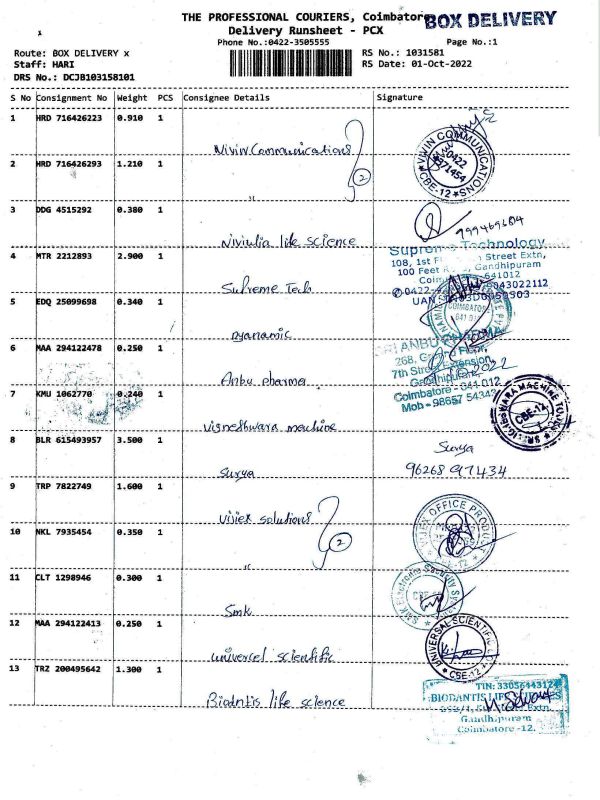 THE PROFESSIONAL COURIERS, Coimbatore
BOX DELIVERY
Delivery Runsheet - PCX
Phone No.:0422-3505555
Page No.:1
Route: BOX DELIVERY x
RS No.: 1031581
Staff: HARI
RS Date: 01-Oct-2022
DRS No.: DCJB103158101
S No Consignment No Weight PCS Consignee Details Signature
1 HRD 716426223 0.910 1 Nivin Communications
VIVIN COMMUNICATIONS CBE-12
2 HRD 716426293 1.210 1 " 2
3 DDG 4515292 0.380 1 life science
4 MTR 2212893 2.900 1 Supreme Tech
Supreme Technology
108, 1st Street Extn,
100 Feet Gandhipuram
641012
9043022112
5 EDQ 25099698 0.340 1 Dyanamic
COIMBATORE
641 012
6 MAA 294122478 0.250 1 Anbu pharma
SRI ANBU PHARMA
268,
7th Street Extension,
Gandhipuram
Coimbatore - 641 012
7 KMU 1062770 0.240 1 Vigneshwara machine
CBE-12
8 BLR 615493957 3.500 1 Surya
Surya
96268 97434
9 TRP 7822749 1.600 1 Vijex solutions
VIJEX OFFICE PRODUCT
CBE-12
10 NKL 7935454 0.350 1 " 2
11 CLT 1298946 0.300 1 Smk
SMK Electronic Security
12 MAA 294122413 0.250 1 univercel scientific
UNIVERSAL SCIENTIFIC
CBE-12
13 TRZ 200495642 1.300 1 Biodntis life science
TIN: 33056443124
BIODANTIS LIFE
Gandhipuram
Coimbatore -12.